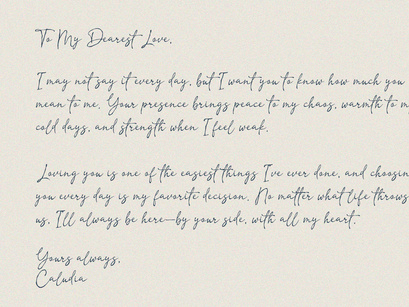 To My Dearest Love,
I may not say it every day, but I want you to know how much you
mean to me. Your presence brings peace to my chaos, warmth to
cold days, and strength when I feel weak.
Loving you is one of the easiest things I've ever done, and
you every day is my favorite decision. No matter what life throws
us, I'll always be here—by your side, with all my heart.
Yours always,
Caludia